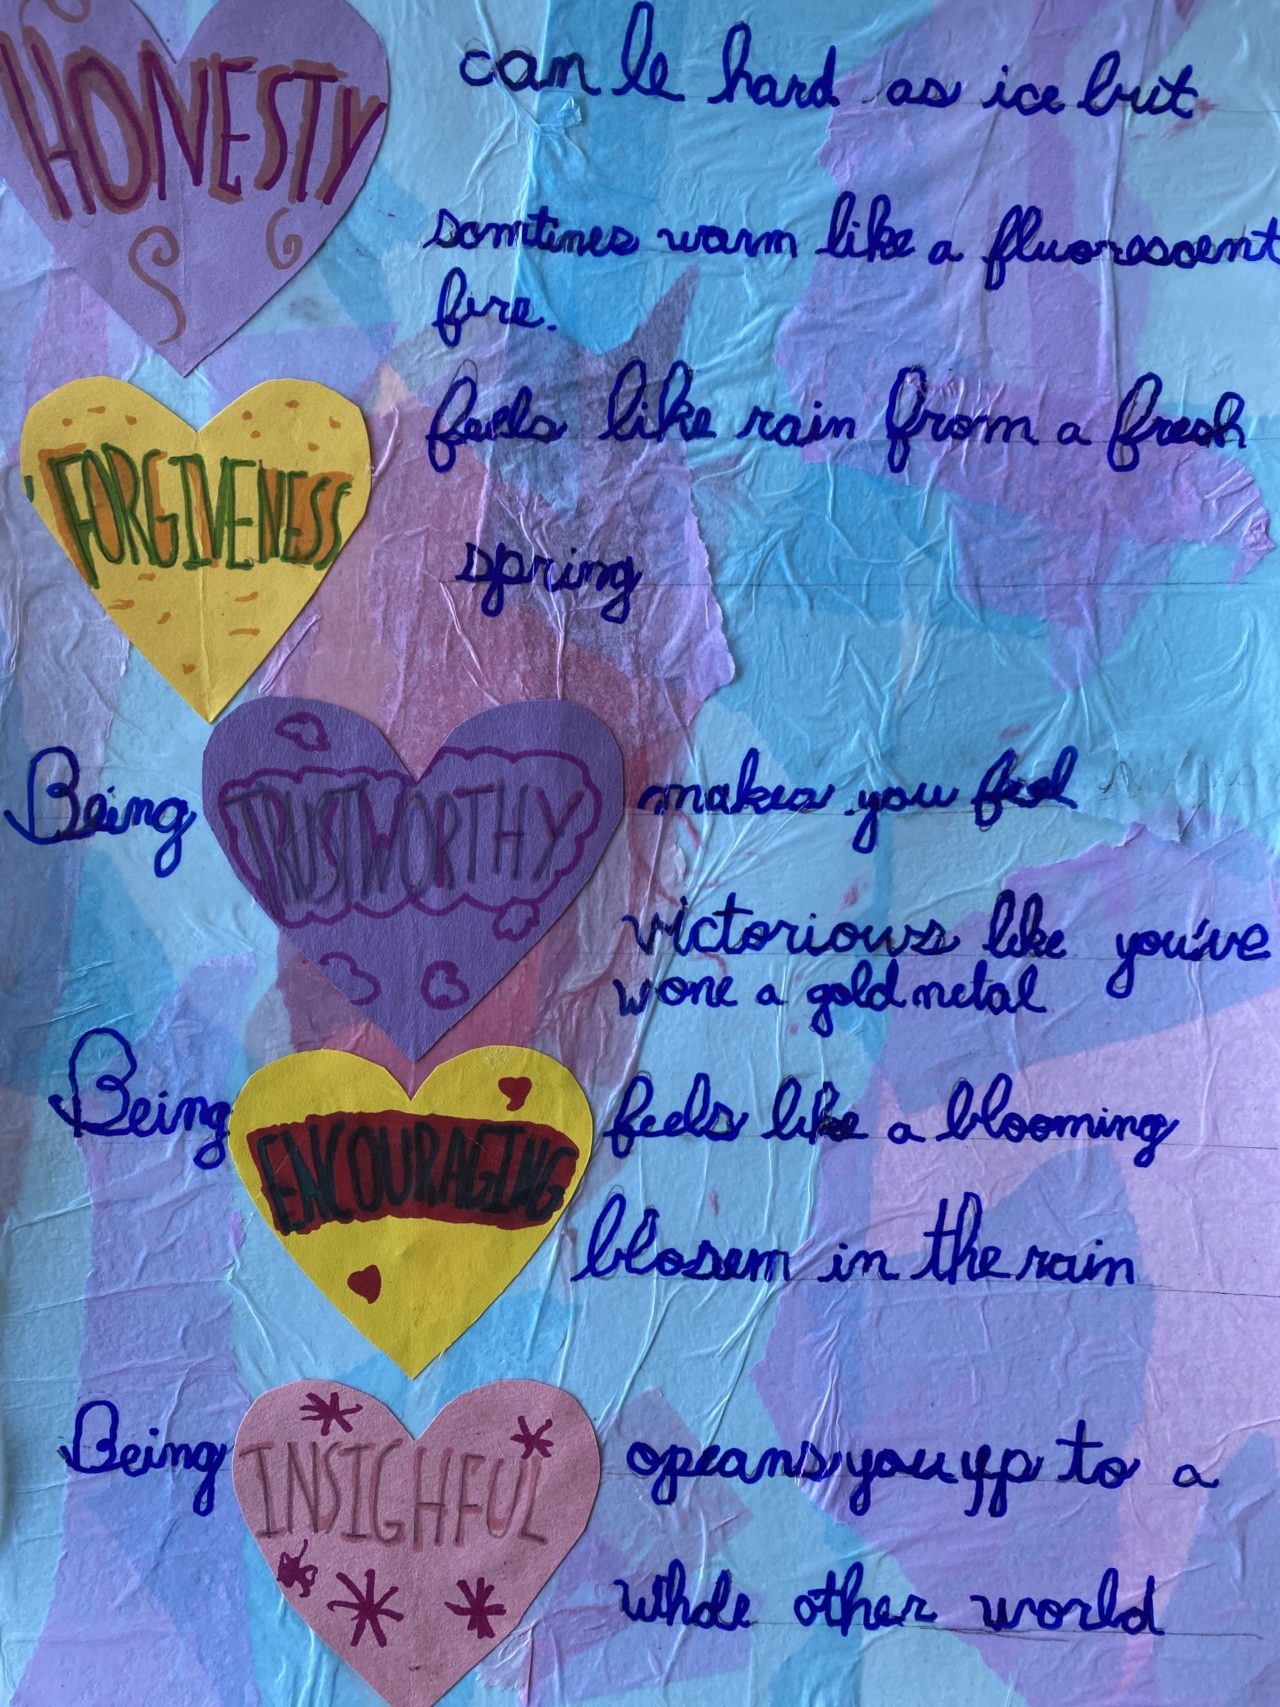 HONESTY can be hard as ice but
somtimes warm like a fluorescent
fire.
FORGIVENESS feels like rain from a fresh
spring
Being TRUSTWORTHY makes you feel
victorious like you've
wone a gold metal
Being ENCOURAGING feels like a blooming
blosem in the rain
Being INSIGHFUL opeans you yp to a
whole other world